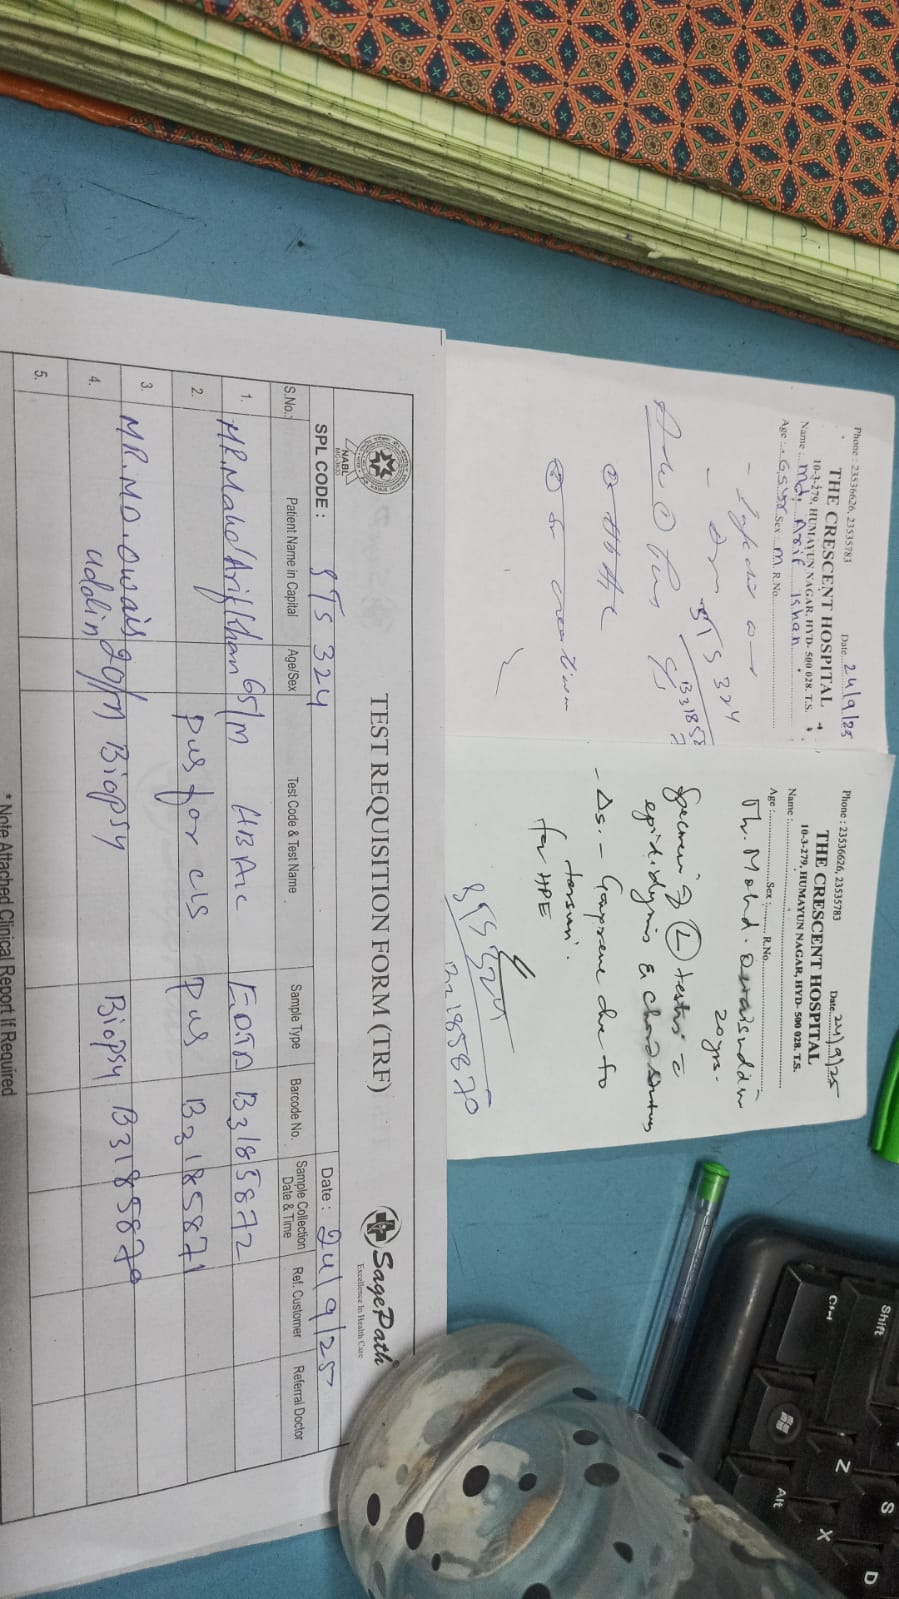 Phone : 23536626, 23535783
Date 24/9/25
THE CRESCENT HOSPITAL
10-3-279, HUMAYUN NAGAR, HYD- 500 028. T.S.
Name : Md. Arif Khan
Age : 65yr Sex M R.No.
STS 324
B31858
Adv
Pus c/s
Phone : 23536626, 23535783
Date 24/9/25
THE CRESCENT HOSPITAL
10-3-279, HUMAYUN NAGAR, HYD- 500 028. T.S.
Name :
Age : Sex : R.No.
Mr. Mohd. Owaisuddin
20yrs.
Specimen of (L) testis c
epididymis &
- Ds. - Gangrene due to
torsion.
for HPE
B3185870
NABL
TEST REQUISITION FORM (TRF)
SagePath
Excellence In Health Care
SPL CODE : STS 324
Date : 24/9/25
S.No. Patient Name in Capital Age/Sex Test Code & Test Name Sample Type Barcode No. Sample Collection Date & Time Ref. Customer Referral Doctor
1. MR. Mahd Arif Khan 65/M HBA1c EDTA B3185872
2. Pus for c/s Pus B3185871
3. MR. MD. Owais 20/M Biopsy Biopsy B3185870
4. uddin
5.
* Note Attached Clinical Report If Required
Shift
Ctrl
Alt
Z
X
S
D